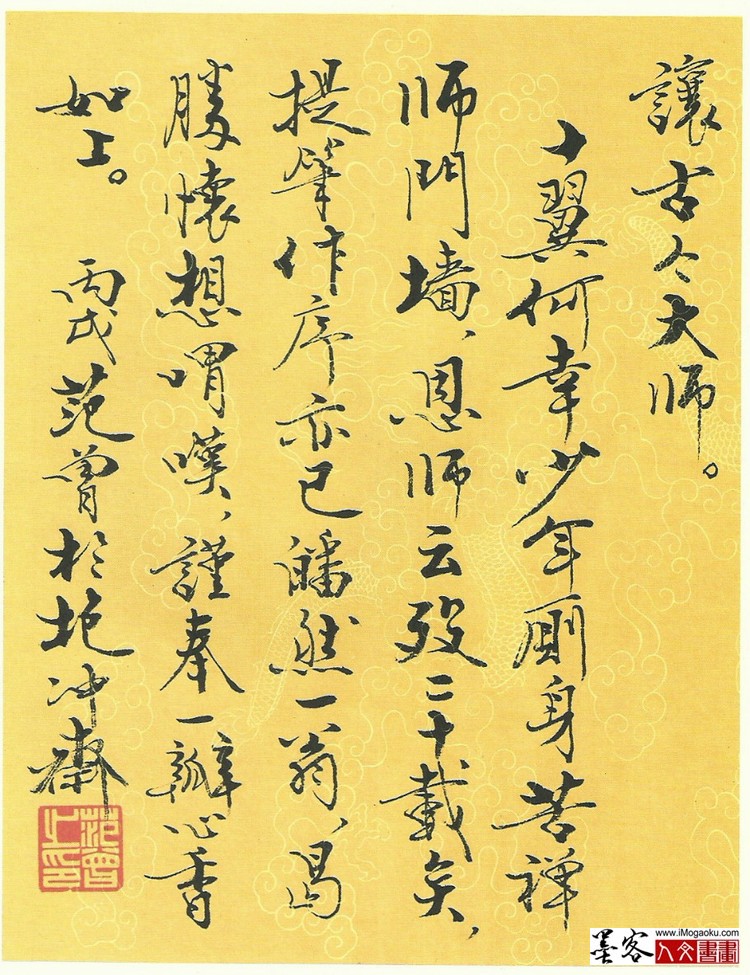 讓古今大师。
十翼何幸少年廁身苦禅
师門墙、恩师云殁二十載矣、
提筆作序亦已皤然一翁、曷
勝懷想喟嘆、謹奉一瓣心香
如上。
丙戌范曾於抱冲齋
范曾之印
墨客
人文書畫
www.iMogaoku.com